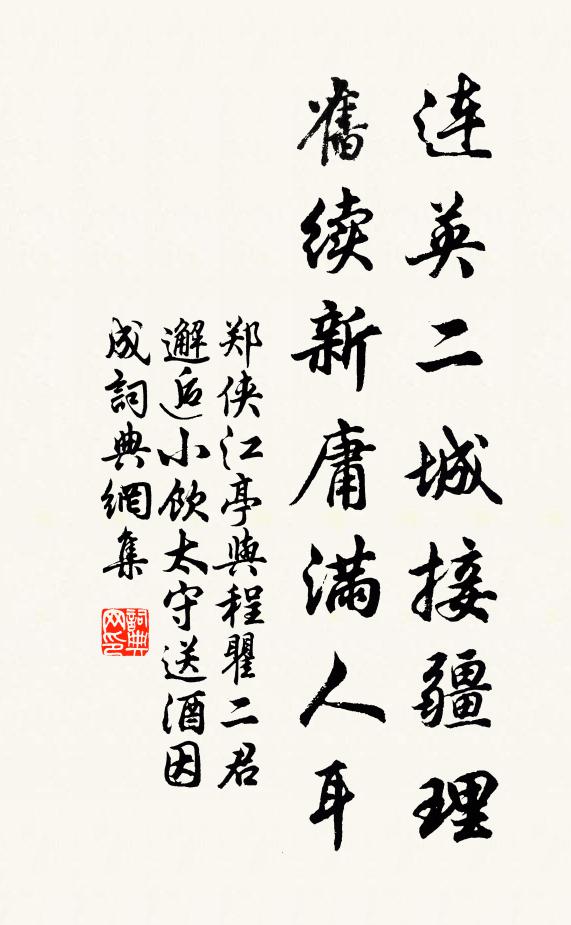 連英二城接疆理
舊续新庸滿人耳
郑侠江亭與程瞿二君
邂逅小飲太守送酒因
成詞典網集
詞典网印